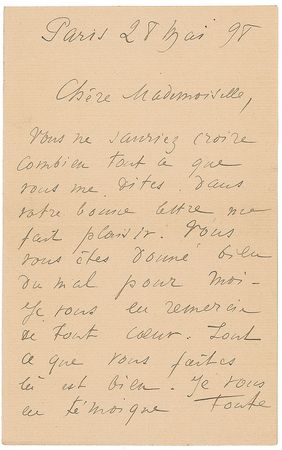 Paris 28 Mai 98
Chère Mademoiselle,
Vous ne sauriez croire
combien tout ce que
vous me dites dans
votre bonne lettre me
fait plaisir. Vous
vous êtes donné bien
du mal pour moi-
Je vous en remercie
de tout cœur. Tout
ce que vous faites
là est bien. Je vous
en témoigne toute